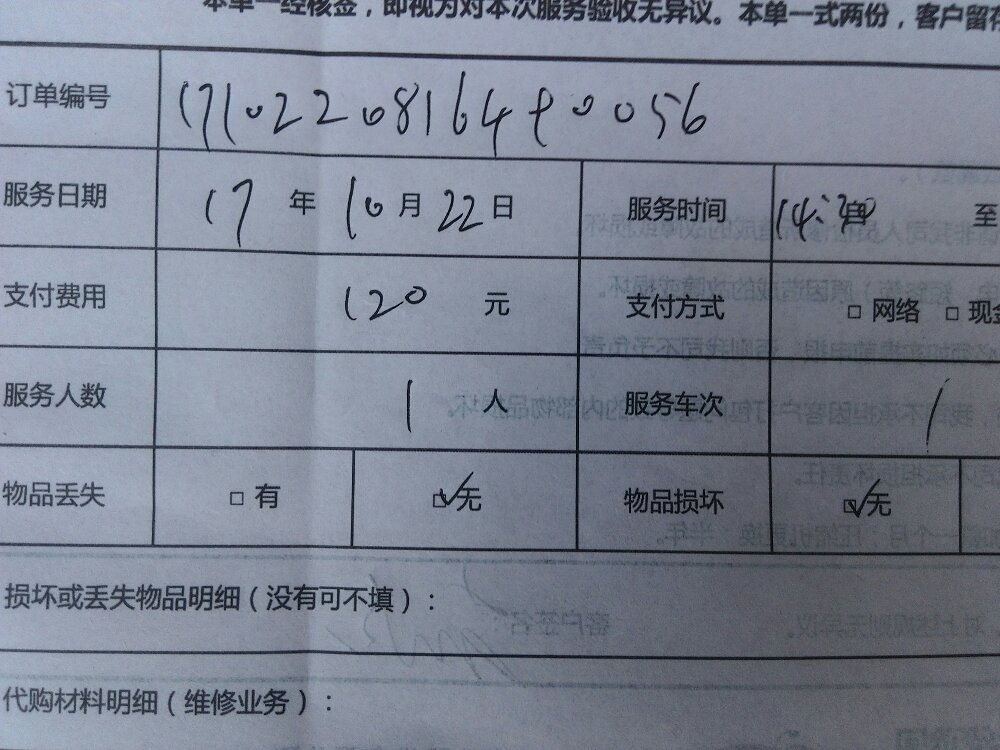 本单一经核签，即视为对本次服务验收无异议。本单一式两份，客户留存
订单编号 17102208164900056
服务日期 17 年 10 月 22 日 服务时间 14: 至
支付费用 120 元 支付方式 □ 网络 □ 现金
服务人数 1 人 服务车次 1
物品丢失 □ 有 ☑ 无 物品损坏 ☑ 无
损坏或丢失物品明细（没有可不填）：
代购材料明细（维修业务）：